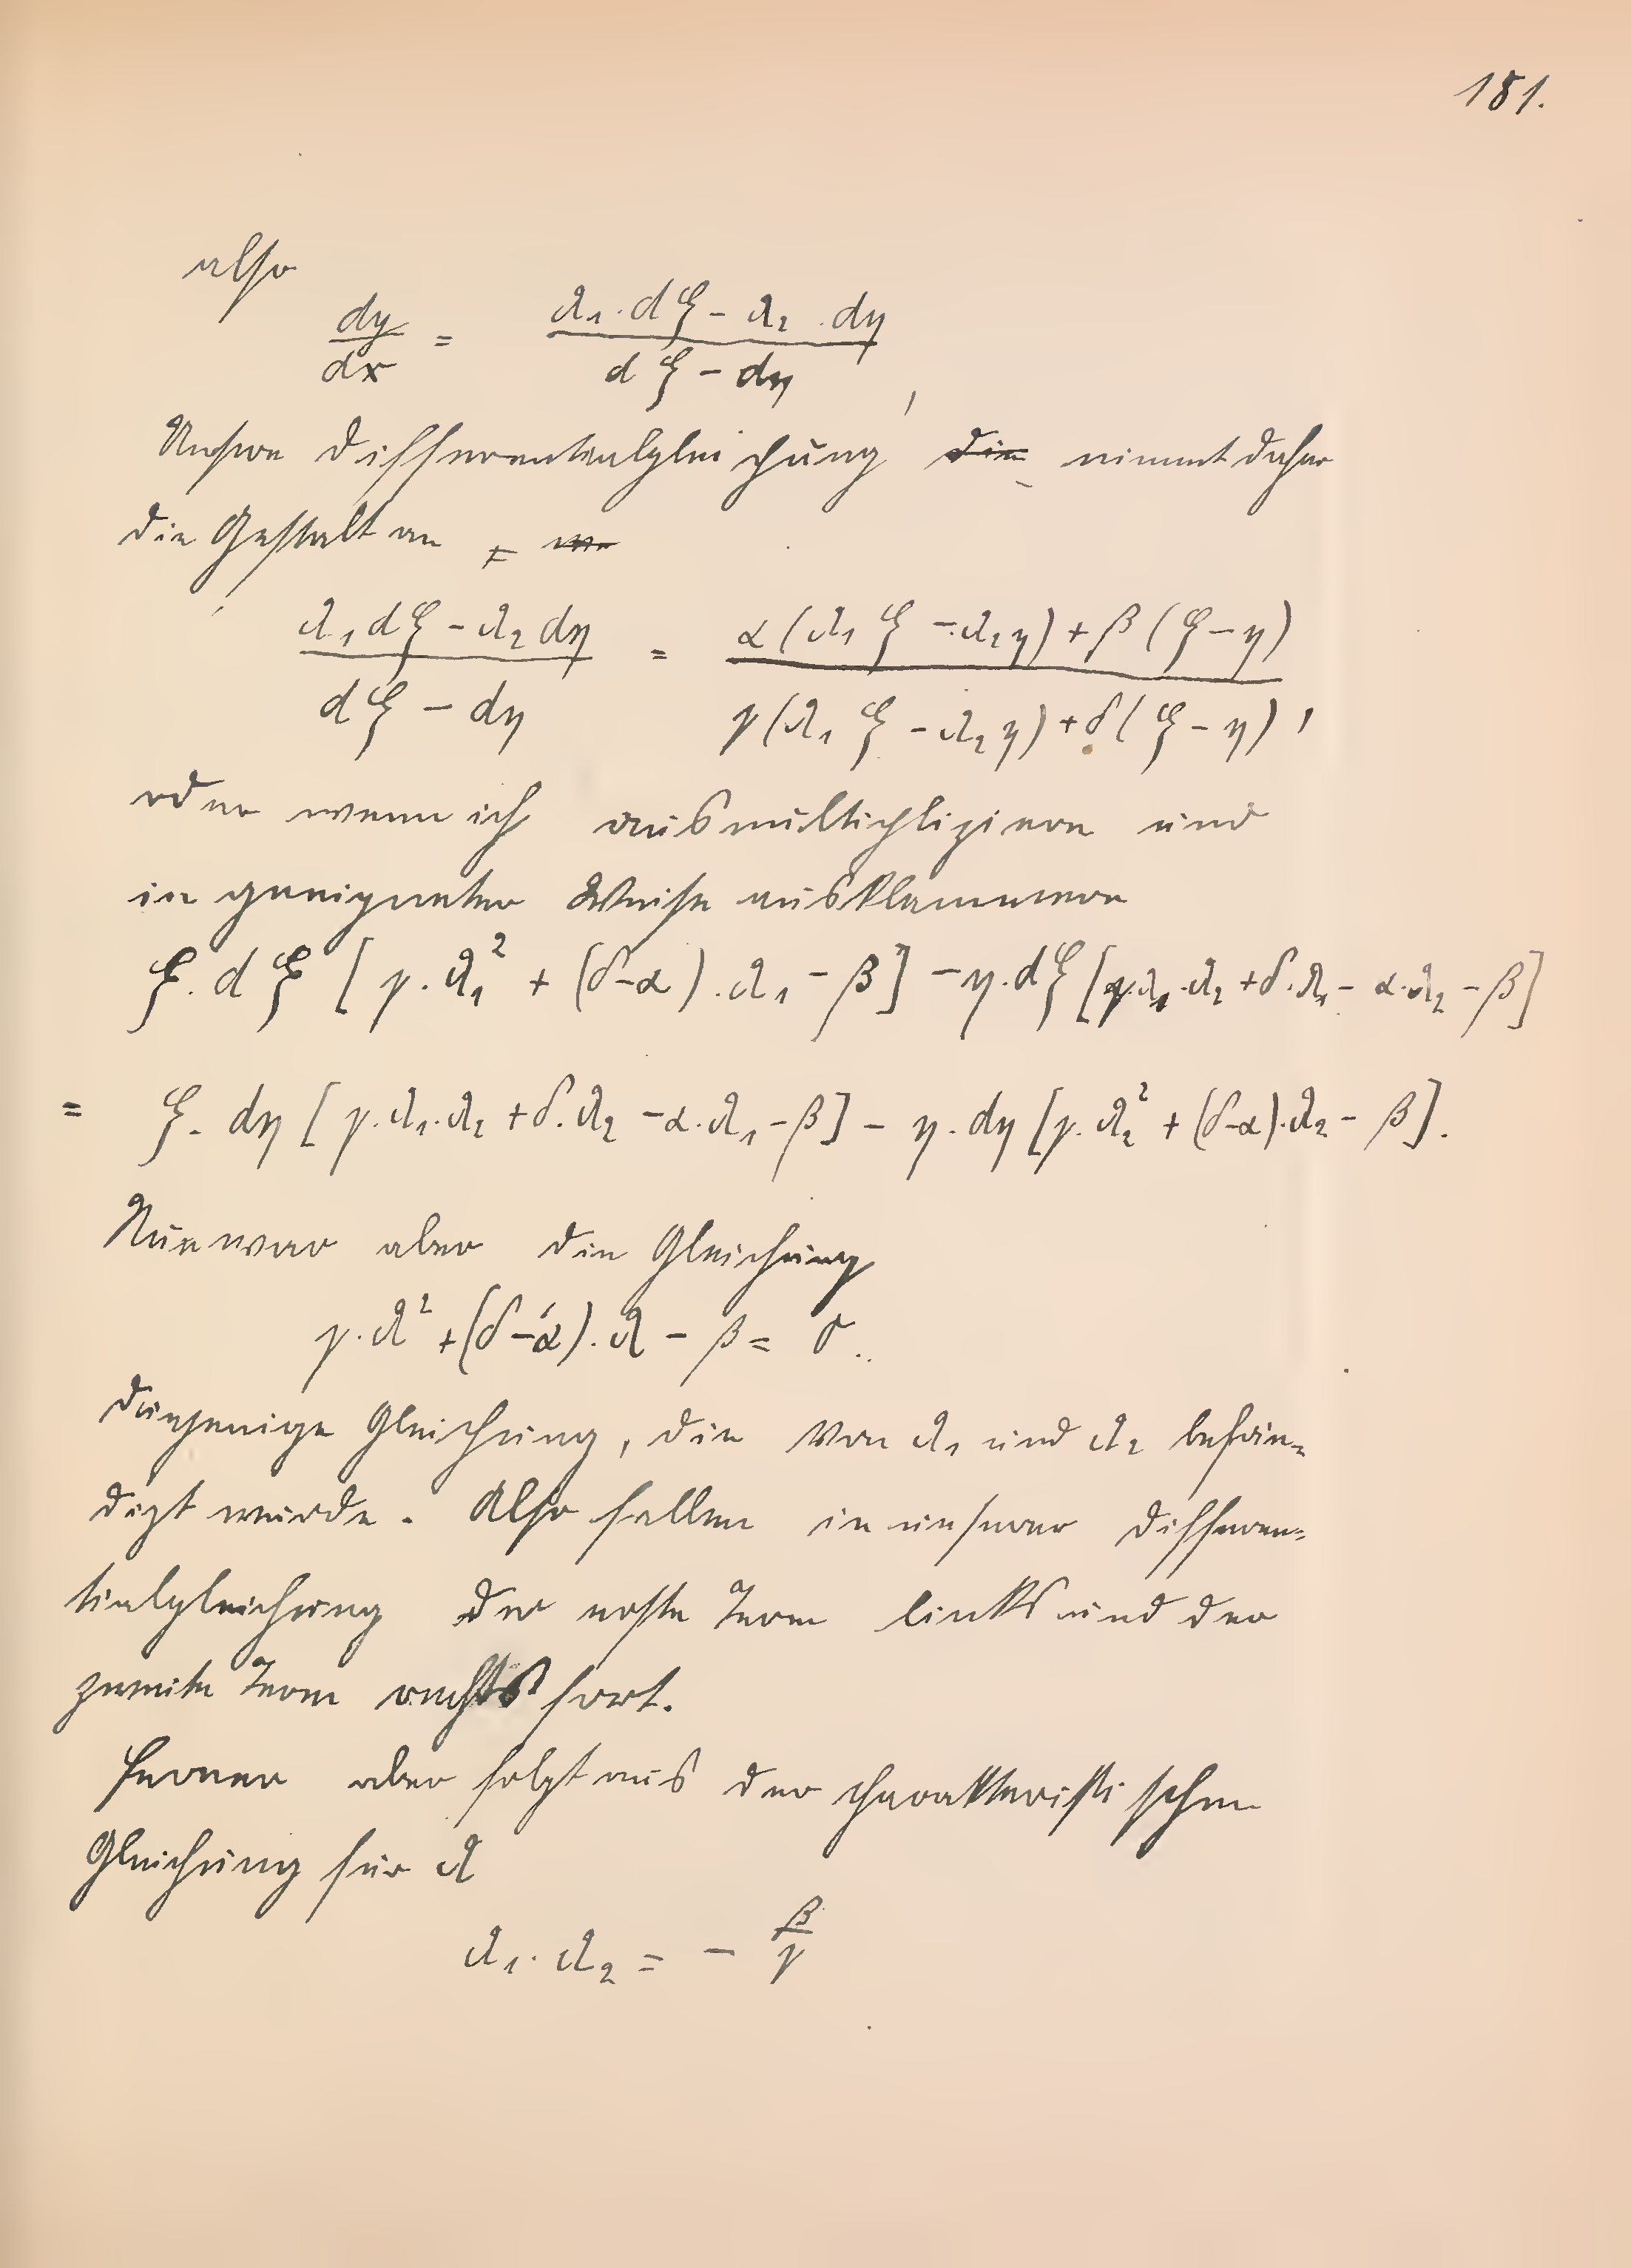 181.
also
dy/dx = (λ₁·dξ - λ₂·dη)/(dξ - dη),
Unsre Differentialgleichung die nimmt daher
die Gestalt an
(λ₁dξ - λ₂dη)/(dξ - dη) = (α(λ₁ξ - λ₂η) + β(ξ-η))/(γ(λ₁ξ - λ₂η) + δ(ξ-η)),
oder wenn ich ausmultipliziere und
in geeigneter Weise ausklammere
ξ·dξ [γ·λ₁² + (δ-α)·λ₁ - β] - η·dξ [γ·λ₁·λ₂ + δ·λ₁ - α·λ₂ - β]
= ξ·dη [γ·λ₁·λ₂ + δ·λ₂ - α·λ₁ - β] - η·dη [γ·λ₂² + (δ-α)·λ₂ - β].
Nun war aber die Gleichung
γ·λ² + (δ-α)·λ - β = 0.
diejenige Gleichung, die von λ₁ und λ₂ befrie-
digt wurde. Also fallen in unserer Differen-
tialgleichung der erste Term links und der
zweite Term rechts fort.
Ferner aber folgt aus der charakteristischen
Gleichung für λ
λ₁·λ₂ = - β/γ